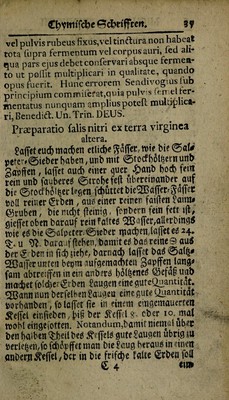 Chymische Schrifften. 39
vel pulvis rubeus fixus, vel tinctura non habeat
tota supra fermentum vel corpus auri, sed ali-
qua pars ejus debet conservari absque fermen-
to ut possit multiplicari in qualitate, quando
opus fuerit. Hunc errorem Sendivogius sub
principium commisit at, quia pulvis semel fer-
mentatus nunquam amplius potest multiplica-
ri, Benedict. Un. Trin. DEUS.
Præparatio salis nitri ex terra virginea
altera.
Lasset euch machen etliche Fässer, wie die Sal-
peter-Sieder haben, und mit Stockhöltzern und
Zapffen, lasset auch einer quer Hand hoch fein
rein und sauberes Strohe fest übereinander auf
die Stockhöltzer legen, schüttet die Wasser-Fässer
voll reiner Erden, aus einer reinen faisten Laim-
Gruben, die nicht steinig, sondern fein fett ist,
giesset oben darauf rein kaltes Wasser, allerdings
wie es die Salpeter-Sieder machen, lasset es 24.
T. u. N. darauf stehen, damit es das reine aus
der Erden in sich ziehe, darnach lasset das Saltz-
Wasser unten beym aufgemachten Zapffen lang-
sam abtreiffen in ein anders höltzenes Gefäß und
machet solcher Erden Laugen eine gute Quantität.
Wann nun derselben Laugen eine gute Quantität
vorhanden, so lasset sie in einem eingemauerten
Kessel einsieden, biß der Kessel 8. oder 10. mal
wohl eingesotten. Notandum, damit niemal über
den halben Theil des Kessels gute Laugen übrig zu
verletzen, so schöpffet man die Laug heraus in einen
andern Kessel, der in die frische kalte Erden soll
C 4 ein